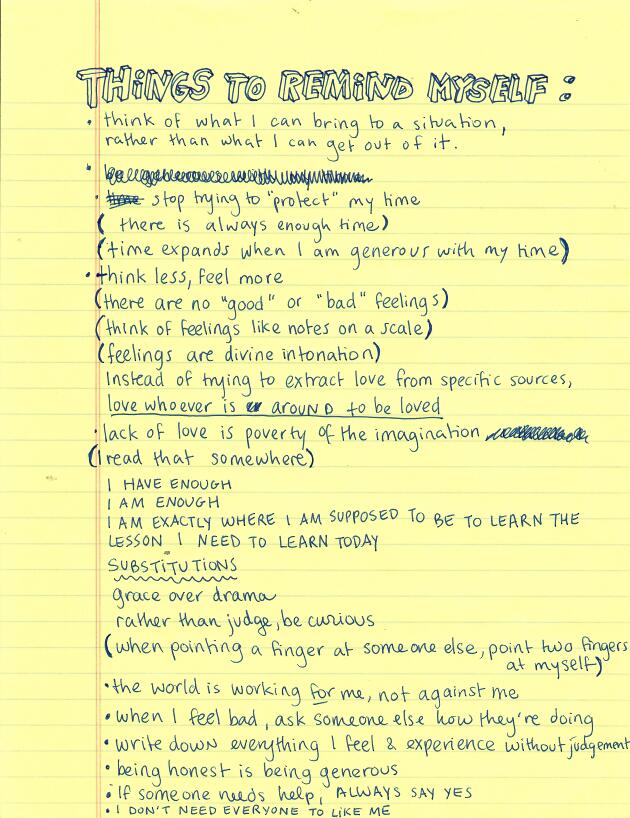 THINGS TO REMIND MYSELF:
• think of what I can bring to a situation,
rather than what I can get out of it.
•
• stop trying to "protect" my time
( there is always enough time)
(time expands when I am generous with my time)
• think less, feel more
(there are no "good" or "bad" feelings)
(think of feelings like notes on a scale)
(feelings are divine intonation)
Instead of trying to extract love from specific sources,
love whoever is AROUND to be loved
• lack of love is poverty of the imagination
(I read that somewhere)
I HAVE ENOUGH
I AM ENOUGH
I AM EXACTLY WHERE I AM SUPPOSED TO BE TO LEARN THE
LESSON I NEED TO LEARN TODAY
SUBSTITUTIONS
grace over drama
rather than judge, be curious
(when pointing a finger at someone else, point two fingers
at myself)
• the world is working for me, not against me
• when I feel bad, ask someone else how they're doing
• write down everything I feel & experience without judgement
• being honest is being generous
• If someone needs help, ALWAYS SAY YES
• I DON'T NEED EVERYONE TO LIKE ME